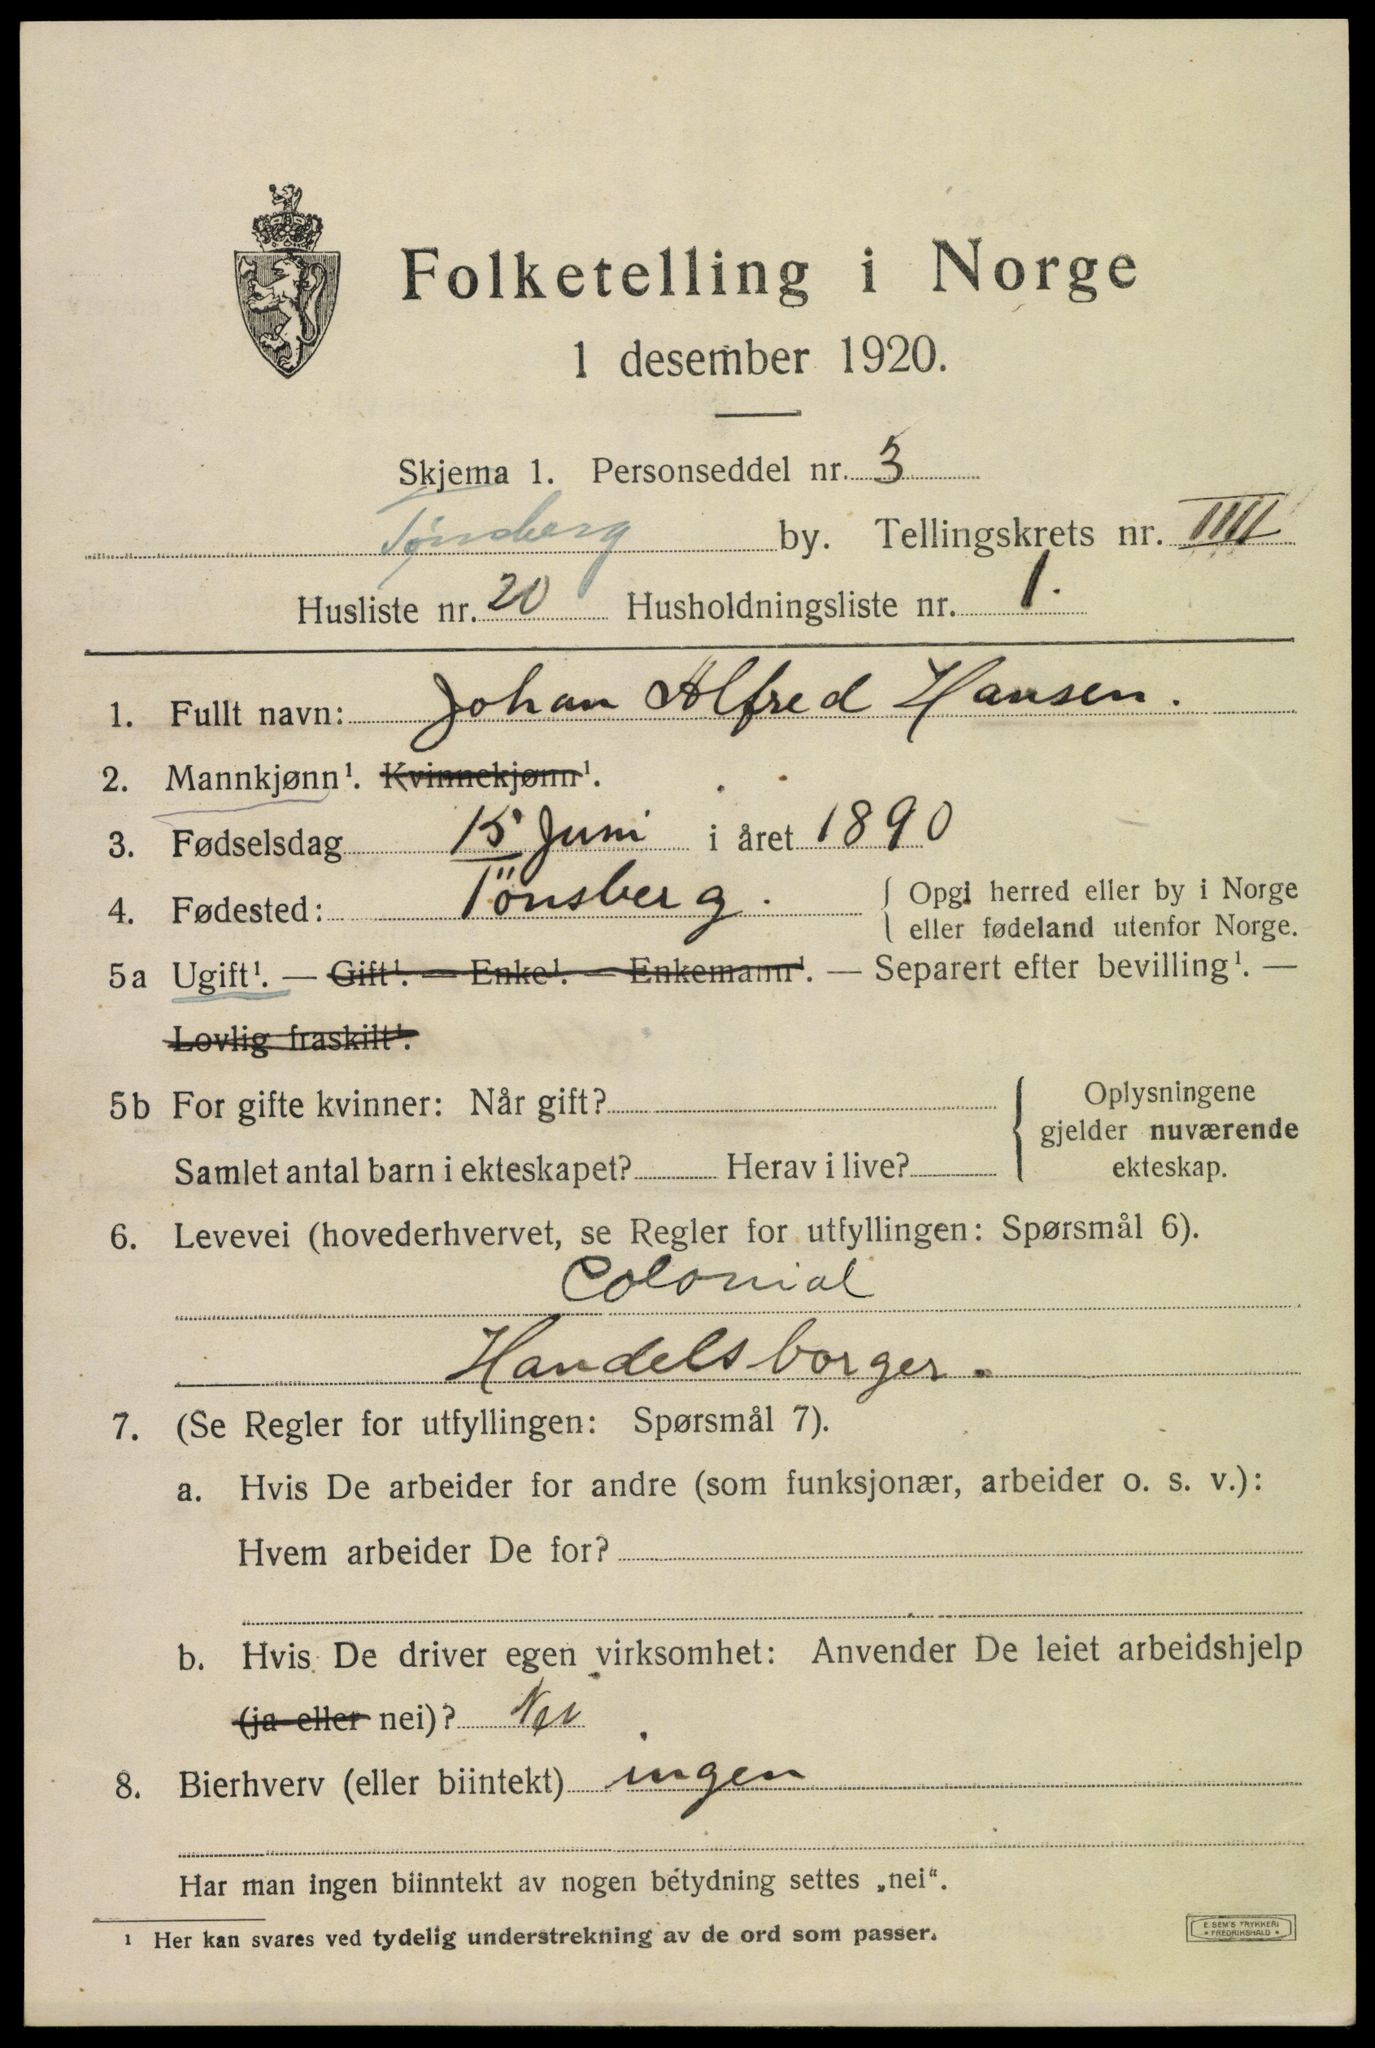 Folketelling i Norge
1 desember 1920.
Skjema 1. Personseddel nr. 3
Tønsberg by. Tellingskrets nr. IIII
Husliste nr. 20 Husholdningsliste nr. 1.
1. Fullt navn: Johan Alfred Hansen.
2. Mannkjønn¹. Kvinnekjønn¹.
3. Fødselsdag 15 Juni i året 1890
4. Fødested: Tönsberg. { Opgi herred eller by i Norge
eller fødeland utenfor Norge.
5a Ugift¹. — Gift¹. — Enke¹. — Enkemann¹. — Separert efter bevilling¹. —
Lovlig fraskilt¹.
5b For gifte kvinner: Når gift? { Oplysningene
gjelder nuværende
Samlet antal barn i ekteskapet? Herav i live? ekteskap.
6. Levevei (hovederhvervet, se Regler for utfyllingen: Spørsmål 6).
Colonial
Handelsborger.
7. (Se Regler for utfyllingen: Spørsmål 7).
a. Hvis De arbeider for andre (som funksjonær, arbeider o. s. v.):
Hvem arbeider De for?
b. Hvis De driver egen virksomhet: Anvender De leiet arbeidshjelp
(ja eller nei)? Nei
8. Bierhverv (eller biintekt) ingen
Har man ingen biinntekt av nogen betydning settes „nei“.
¹ Her kan svares ved tydelig understrekning av de ord som passer.
E. SEM'S TRYKKERI
* FREDRIKSHALD *